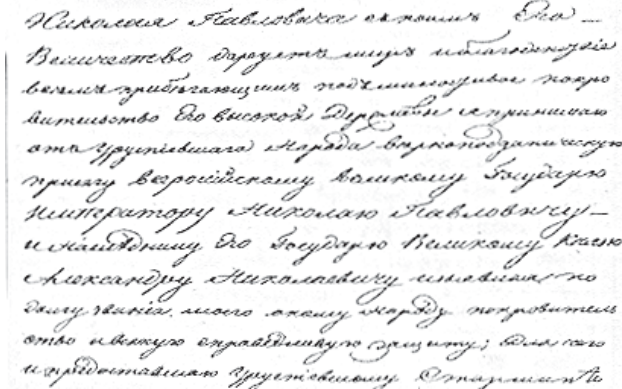 Николая Павловича коимъ Его
Величество даруетъ миръ и благоденствіе
всемъ прибѣгающимъ подъ милостивое покро
вительство Его высокой Державы и принимаю
отъ Урустіевшаго Народа вѣрноподданическую
присягу всероссійскому великому Государю
Императору Николаю Павловичу
и наслѣднику Его Государю Великому Князю
Александру Николаевичу изъявила по
долгу званія моего оному народу покровитель
ство и всякую справедливую защиту;
и предоставляю Старшинѣ